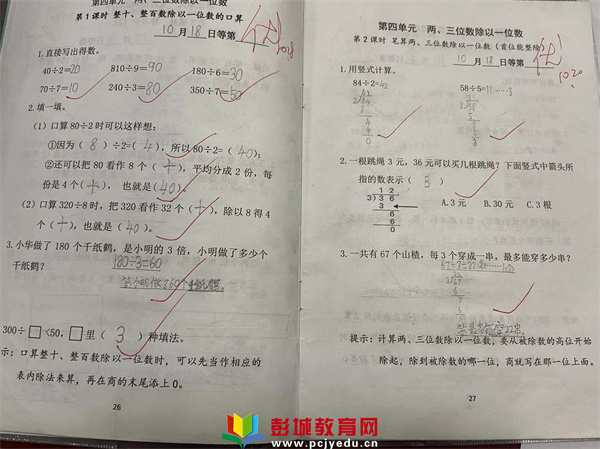 第四单元 两、三位数除以一位数
第1课时 整十、整百数除以一位数的口算
10月18日等第 优 10.18
1.直接写出得数。
40÷2=20 810÷9=90 180÷6=30
70÷7=10 240÷3=80 350÷7=50
2.填一填。
(1)口算80÷2时可以这样想:
①因为(8)÷2=(4),所以80÷2=(40);
②还可以把80看作8个(十),平均分成2份,每
份是4个(十),也就是(40)。
(2)口算320÷8时,把320看作32个(十),除以8得4
个(十),也就是(40)。
3.小华做了180个千纸鹤,是小明的3倍,小明做了多少个
千纸鹤?
180÷3=60
300÷□<50,□里(3)种填法。
示:口算整十、整百数除以一位数时,可以先当作相应的
表内除法来算,再在商的末尾添上0。
26
第四单元 两、三位数除以一位数
第2课时 笔算两、三位数除以一位数(首位能整除)
10月18日等第 优 10.20
1.用竖式计算。
84÷2=42 58÷5=11……3
2.一根跳绳3元,36元可以买几根跳绳?下面竖式中箭头所
指的数表示(B)
1 2
3)3 6
3
6
6
0
A.3元 B.30元 C.3根
3.一共有67个山楂,每3个穿成一串,最多能穿多少串?
提示:计算两、三位数除以一位数,要从被除数的高位开始
除起,除到被除数的哪一位,商就写在那一位上面。
27
彭城教育网
www.pcjyedu.cn